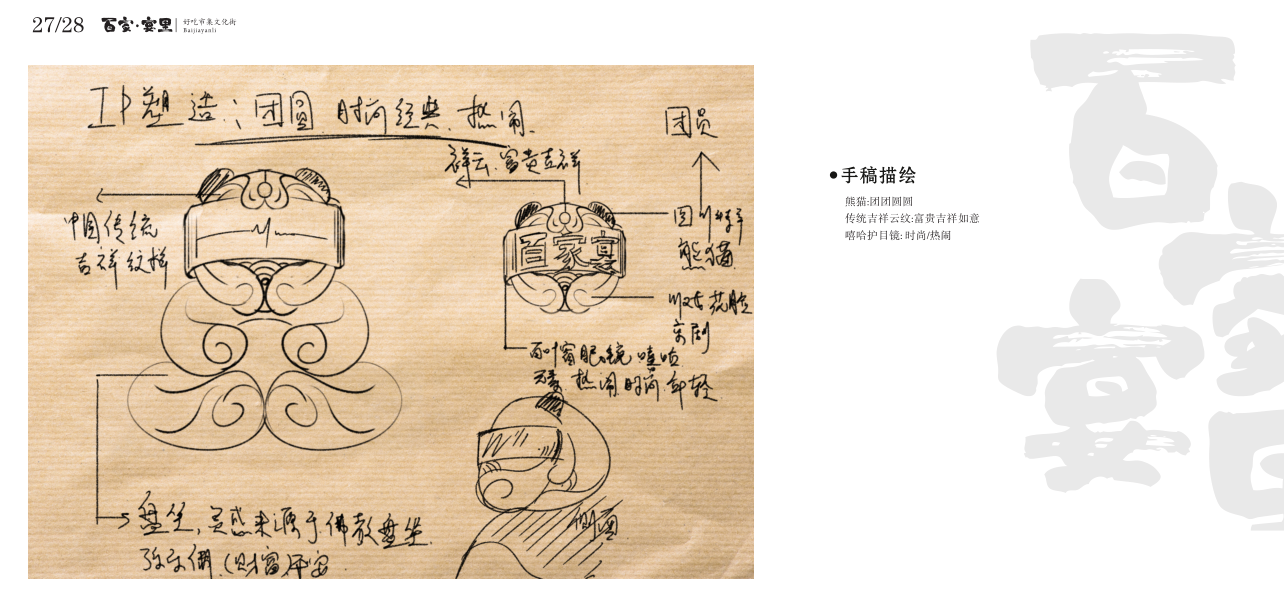 27/28
百家·宴里
好吃市集文化街
Baijiayanli
IP塑造：团圆 时尚 经典 热闹
团员
祥云 富贵吉祥
中国传统
吉祥纹样
百家宴
四川特产
熊猫
川戏 花脸
京剧
百叶窗眼镜 嘻哈
元素 热闹 时尚 年轻
盘坐，灵感来源于佛教盘坐
弥勒佛（财富）平安
侧面
●手稿描绘
熊猫:团团圆圆
传统吉祥云纹:富贵吉祥如意
嘻哈护目镜: 时尚/热闹